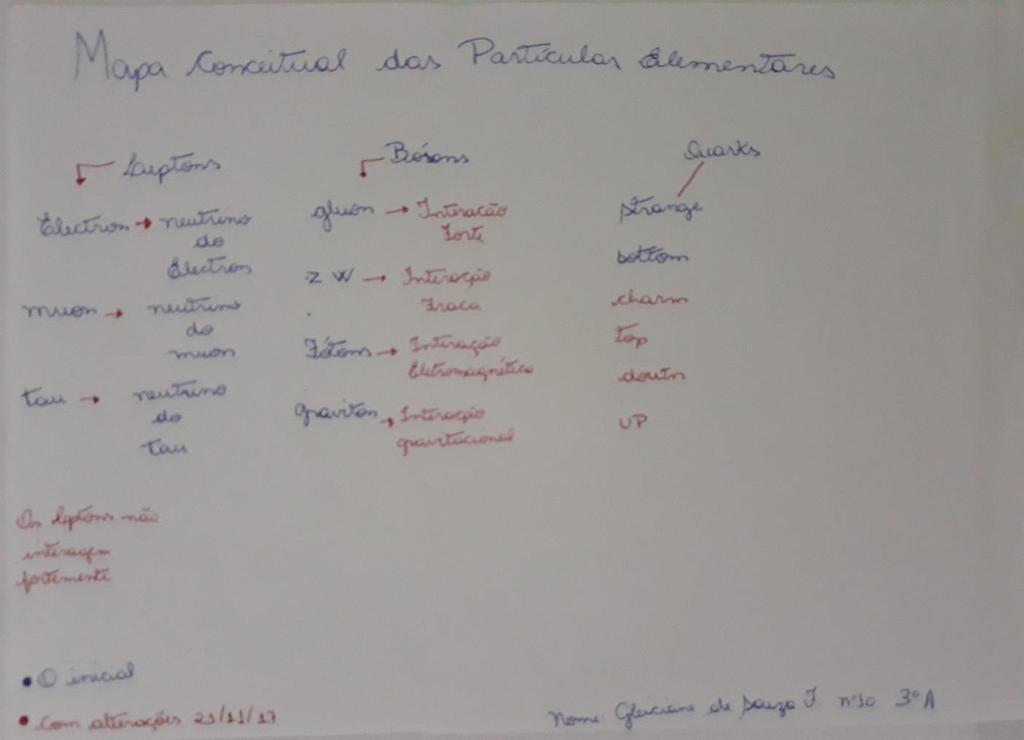 Mapa Conceitual das Partículas Elementares
Leptons
Electron → neutrino
do
Electron
muon → neutrino
do
muon
tau → neutrino
do
tau
Os leptons não
interagem
fortemente
Bósons
gluon → Interação
Forte
Z W → Interação
Fraca
Fótons → Interação
Eletromagnética
graviton → Interação
gravitacional
Quarks
strange
bottom
charm
top
UP
• O inicial
• com alterações 21/11/17
Nome: Gleiciane de Souza F. nº10 3º A